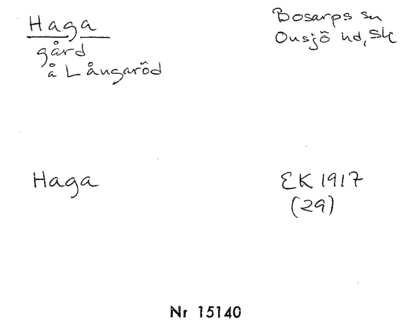 Haga
gård
å Långaröd
Bosarps sn
Onsjö hd, Sk
Haga
EK 1917
(29)
Nr 15140